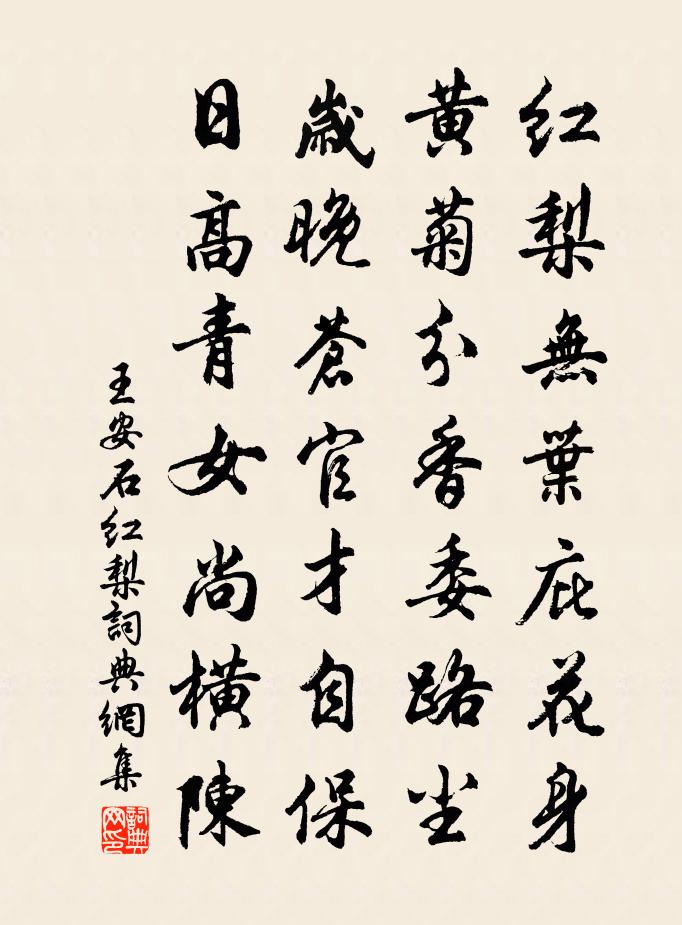 紅梨無葉庇花身
黃菊分香委路尘
歲晚蒼官才自保
日高青女尚橫陳
王安石紅梨詞典網集
詞典網印